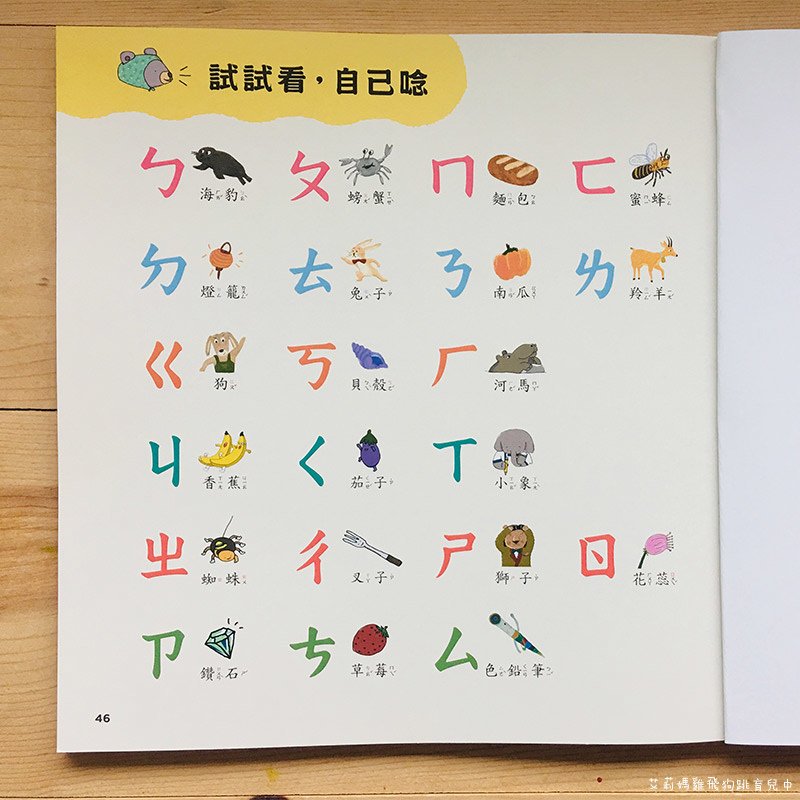 試試看，自己唸
ㄅ 海豹 ㄆ 螃蟹 ㄇ 麵包 ㄈ 蜜蜂
ㄉ 燈籠 ㄊ 兔子 ㄋ 南瓜 ㄌ 羚羊
ㄍ 狗 ㄎ 貝殼 ㄏ 河馬
ㄐ 香蕉 ㄑ 茄子 ㄒ 小象
ㄓ 蜘蛛 ㄔ 叉子 ㄕ 獅子 ㄖ 花蕊
ㄗ 鑽石 ㄘ 草莓 ㄙ 色鉛筆
46
艾莉媽雞飛狗跳育兒中